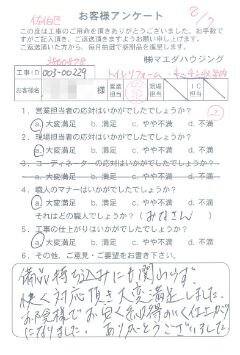 佐伯区
お客様アンケート
2/7
この度は工事のご用命を頂きありがとうございました。お手数で
すがご記入頂き、ご返送頂きますようお願い申し上げます。
ご返送頂いた方から、毎月抽選で粗品を進呈します。
㈱マエダハウジング
工事ID 003-00229
トイレリフォーム・
お客様名 様 営業担当 現場担当 IC担当
1. 営業担当者の応対はいかがでしたでしょうか?
a. 大変満足 b. 満足 c. やや不満 d. 不満
2. 現場担当者の応対はいかがでしたでしょうか?
a. 大変満足 b. 満足 c. やや不満 d. 不満
3. コーディネーターの応対はいかがでしたでしょうか?
a. 大変満足 b. 満足 c. やや不満 d. 不満
4. 職人のマナーはいかがでしたでしょうか?
a. 大変満足 b. 満足 c. やや不満 d. 不満
それはどの職人でしょうか?(みなさん)
5. 工事の仕上がりはいかがでしたでしょうか?
a. 大変満足 b. 満足 c. やや不満 d. 不満
6. その他、ご意見・ご要望をお書き下さい。
備品持ち込みにも関わらず、
快く対応頂き大変満足しました。
お陰様でお安く
になりました。ありがとうございました